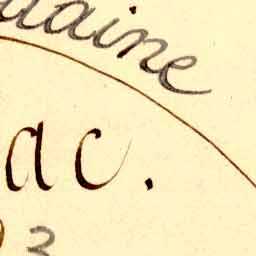 aine
ac.
3